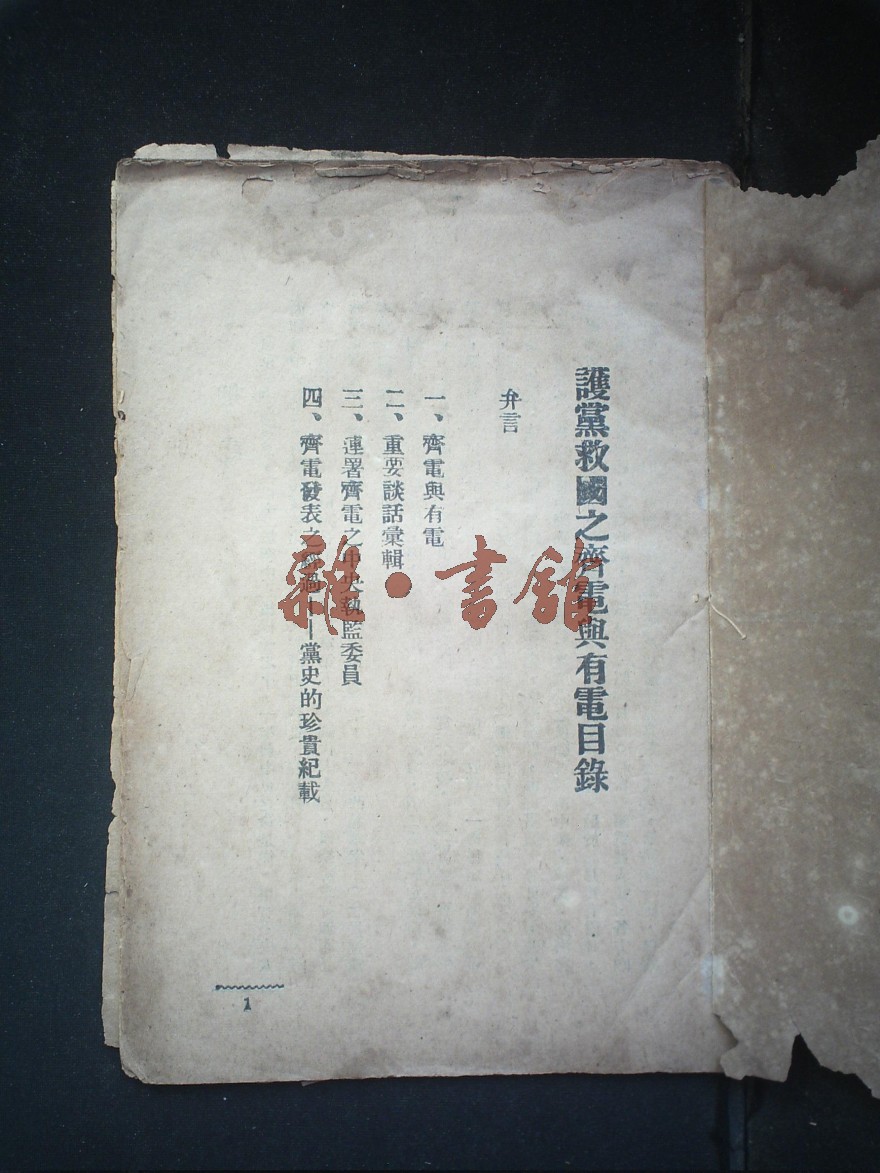 護黨救國之齊電與有電目錄
弁言
一、齊電與有電
二、重要談話彙輯
三、連署齊電之中央執監委員
四、齊電發表之經過——黨史的珍貴紀載
1
雜·書館